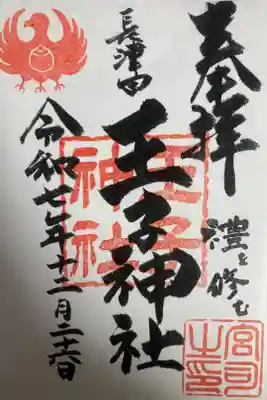 奉拝
禮を修む
長津田
王子神社
令和七年十二月二十六日
王子神社
宮司之印